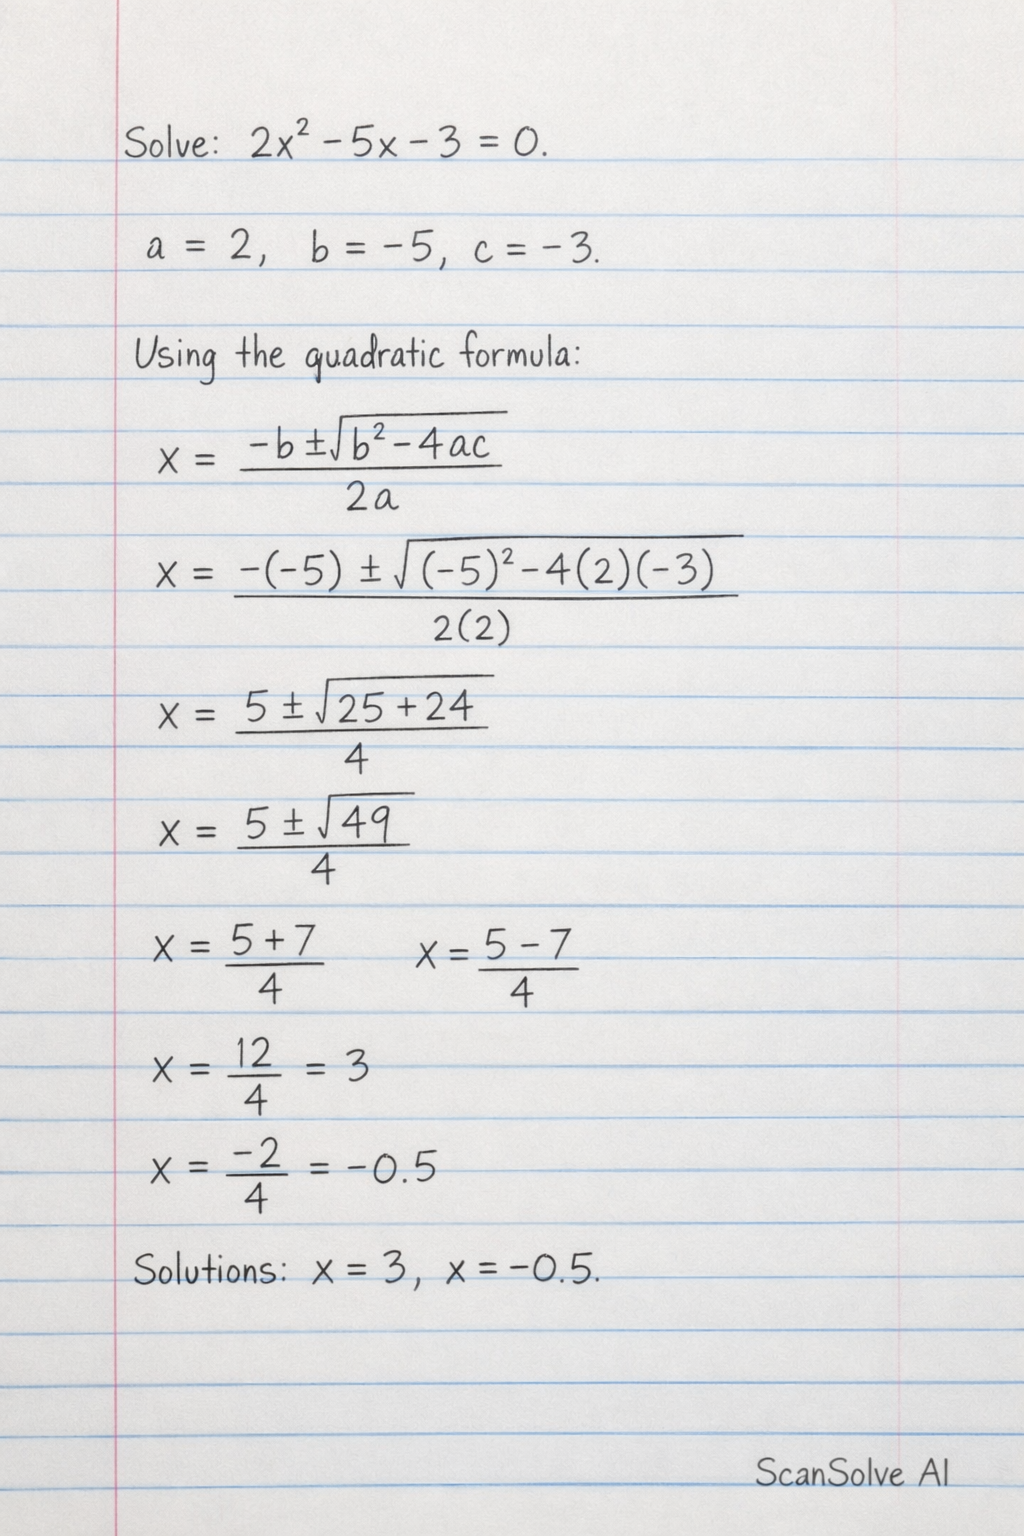 Solve: 2x² - 5x - 3 = 0.
a = 2, b = -5, c = -3.
Using the quadratic formula:
x = (-b ± √(b² - 4ac)) / 2a
x = (-(-5) ± √((-5)² - 4(2)(-3))) / 2(2)
x = (5 ± √(25 + 24)) / 4
x = (5 ± √49) / 4
x = (5 + 7) / 4    x = (5 - 7) / 4
x = 12/4 = 3
x = -2/4 = -0.5
Solutions: x = 3, x = -0.5.
ScanSolve AI